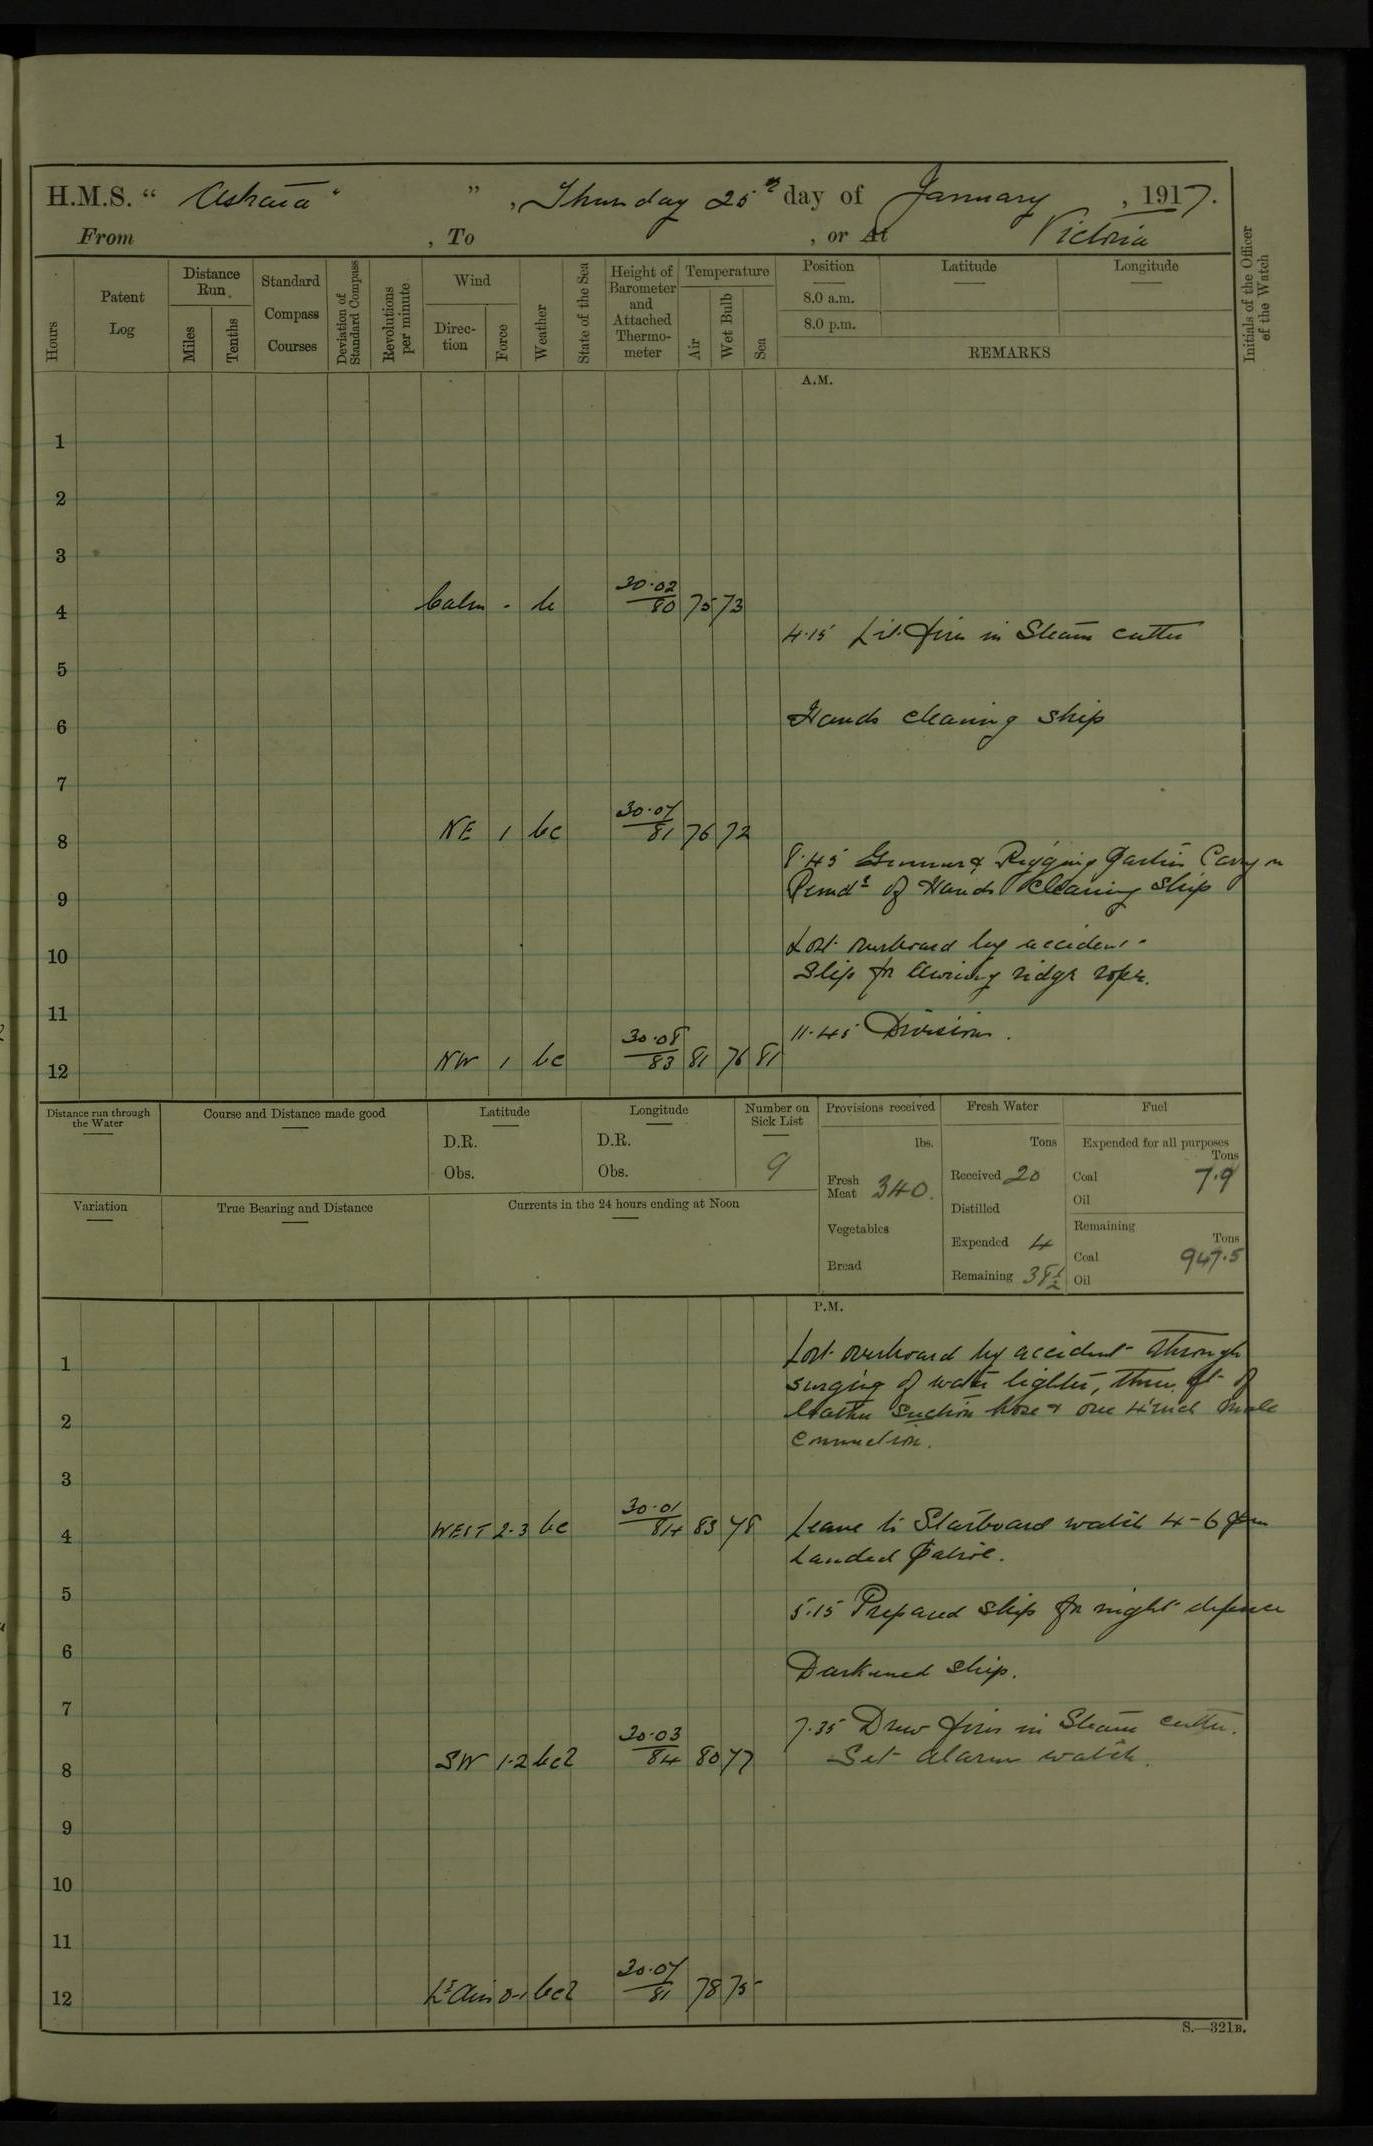 H.M.S. " Astraea " ", Thursday 25th day of January, 1917.
From , To , or At Victoria
Hours
Patent Log
Distance Run
Miles
Tenths
Standard Compass Courses
Deviation of Standard Compass
Revolutions per minute
Wind
Direction
Force
Weather
State of the Sea
Height of Barometer and Attached Thermometer
Temperature
Air
Wet Bulb
Sea
Position
Latitude
Longitude
8.0 a.m.
8.0 p.m.
REMARKS
Initials of the Officer of the Watch
A.M.
1
2
3
4 Calm - bc 30.02/80 75 73
4.15 Lit fires in Steam cutter
5
6 Hands cleaning ship
7
8 NE 1 bc 30.07/81 76 72
8.45 Gunners & Rigging Parties Carry on
9 Remdr of Hands Cleaning Ship
10 Lost overboard by accident -
Slip for Awning ridge rope.
11
11.45 Divisions.
12 NW 1 bc 30.08/83 81 76 81
Distance run through the Water
Course and Distance made good
Latitude
D.R.
Obs.
Longitude
D.R.
Obs.
Number on Sick List
9
Provisions received
lbs.
Fresh Meat 340.
Vegetables
Bread
Fresh Water
Tons
Received 20
Distilled
Expended 4
Remaining 38½
Fuel
Expended for all purposes
Tons
Coal 7.9
Oil
Remaining
Tons
Coal 947.5
Oil
Variation
True Bearing and Distance
Currents in the 24 hours ending at Noon
P.M.
1 Lost overboard by accident through
surging of water lighter, three ft of
2 leather suction hose & one 4 inch male
connection.
3
4 WEST 2-3 bc 30.01/84 83 78 Leave to Starboard watch 4-6 pm
Landed Patrol.
5 5.15 Prepared ship for night defence
6 Darkened ship.
7
7.35 Drew fires in Steam cutter.
8 SW 1-2 bcl 30.03/84 80 77 Set alarm watch.
9
10
11
12 Lt Airs 0-1 bcl 30.07/81 78 75
S.—321B.